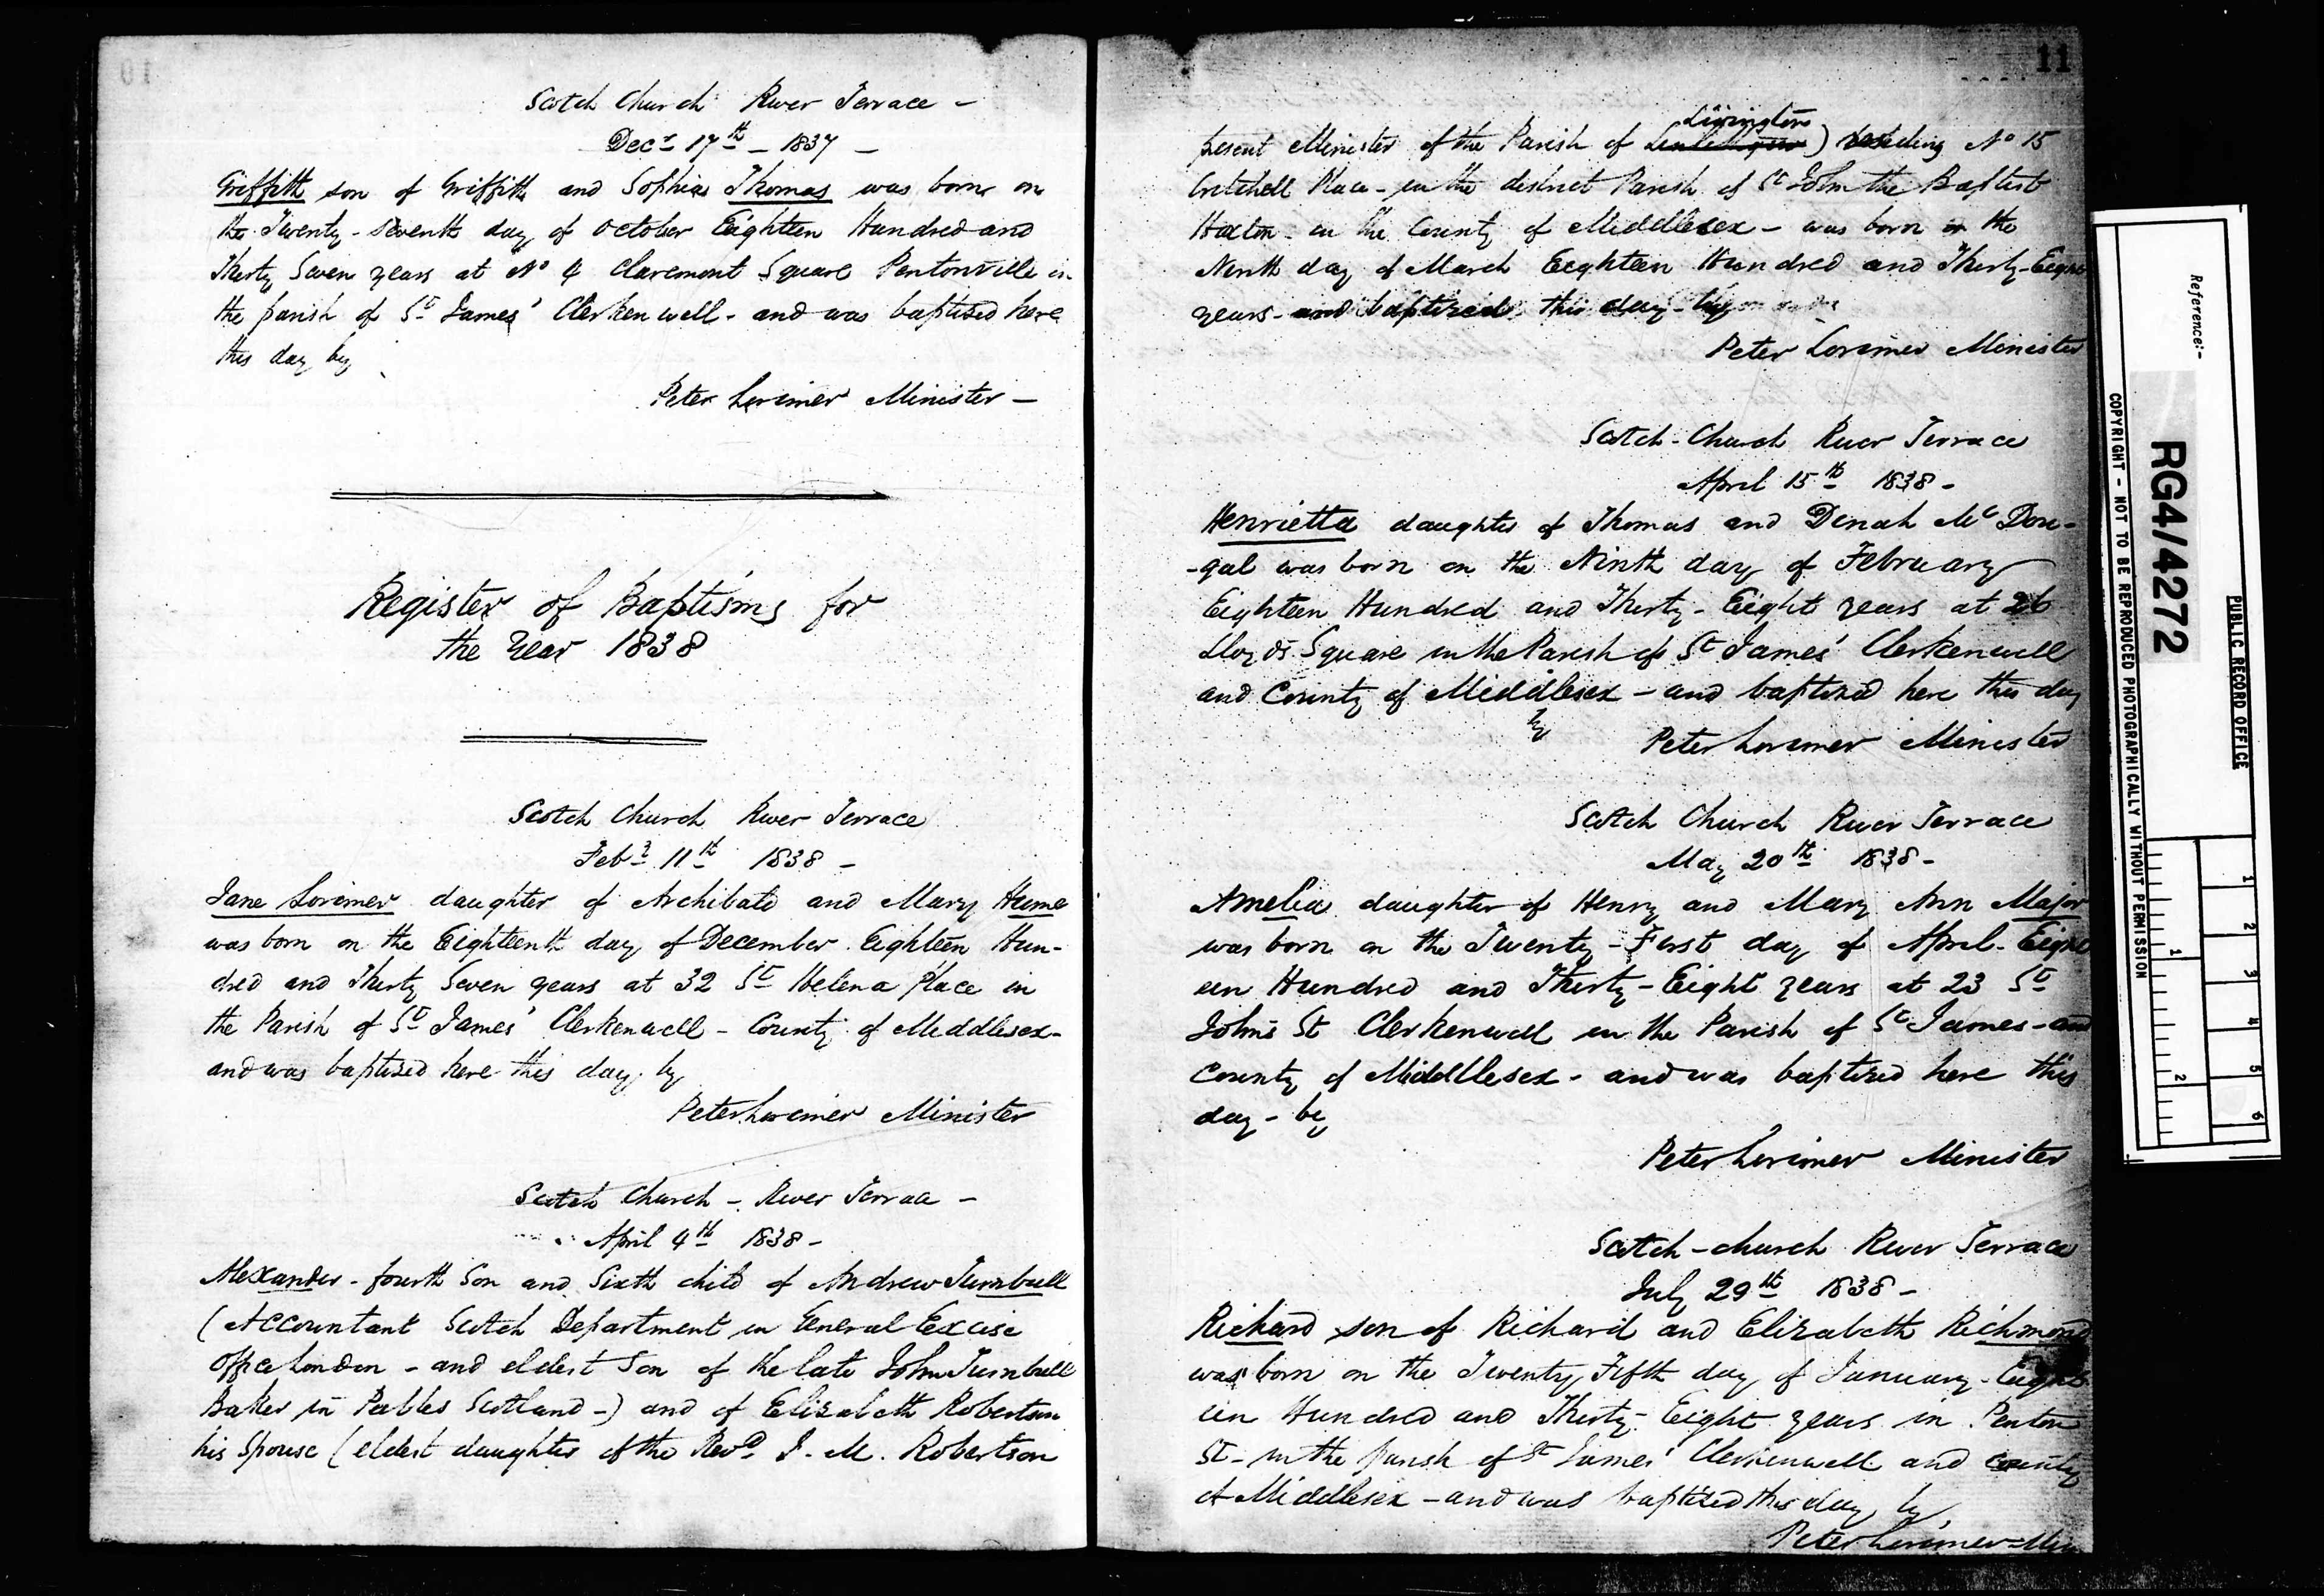 10
Scotch Church River Terrace -
Decr 17th - 1837 -
Griffith son of Griffith and Sophia Thomas was born on
the Twenty-seventh day of October Eighteen Hundred and
Thirty Seven years at No 4 Claremont Square Pentonville in
the parish of St James' Clerkenwell - and was baptised here
this day by
Peter Lorimer Minister -
Register of Baptisms for
the Year 1838
Scotch Church River Terrace
Feby 11th 1838 -
Jane Lorimer daughter of Archibald and Mary Hume
was born on the Eighteenth day of December Eighteen Hun-
dred and Thirty Seven years at 32 St Helena Place in
the Parish of St James' Clerkenwell - County of Middlesex -
and was baptised here this day by
Peter Lorimer Minister
Scotch Church - River Terrace -
April 4th 1838 -
Alexander - fourth Son and Sixth child of Andrew Turnbull
(Accountant Scotch Department in General Excise
Office London - and eldest Son of the late John Turnbull
Baker in Peebles Scotland -) and of Elizabeth Robertson
his Spouse (eldest daughter of the Revd J. M. Robertson
11
Livingston
present Minister of the Parish of ) residing No 15
Critchell Place - in the district Parish of St John the Baptist
Hoxton - in the County of Middlesex - was born on the
Ninth day of March Eighteen Hundred and Thirty-Eight
years - and baptized this day - by
Peter Lorimer Minister
Scotch - Church River Terrace
April 15th 1838 -
Henrietta daughter of Thomas and Dinah Mc Dou-
-gal was born on the Ninth day of February
Eighteen Hundred and Thirty-Eight years at 26
Lloyds Square in the Parish of St James' Clerkenwell
and County of Middlesex - and baptized here this day
by
Peter Lorimer Minister
Scotch Church River Terrace
May 20th 1838 -
Amelia daughter of Henry and Mary Ann Major
was born on the Twenty-First day of April - Eight
een Hundred and Thirty-Eight years at 23 St
John's St Clerkenwell in the Parish of St James - and
County of Middlesex - and was baptized here this
day - by
Peter Lorimer Minister
Scotch - church River Terrace
July 29th 1838 -
Richard son of Richard and Elizabeth Richmond
was born on the Twenty Fifth day of January - Eight
een Hundred and Thirty-Eight years in Penton
St - in the parish of St James' Clerkenwell and County
of Middlesex - and was baptized this day by
Peter Lorimer - Min
Reference:-
RG4/4272
PUBLIC RECORD OFFICE
COPYRIGHT - NOT TO BE REPRODUCED PHOTOGRAPHICALLY WITHOUT PERMISSION
1
2
3
4
5
6
1
2